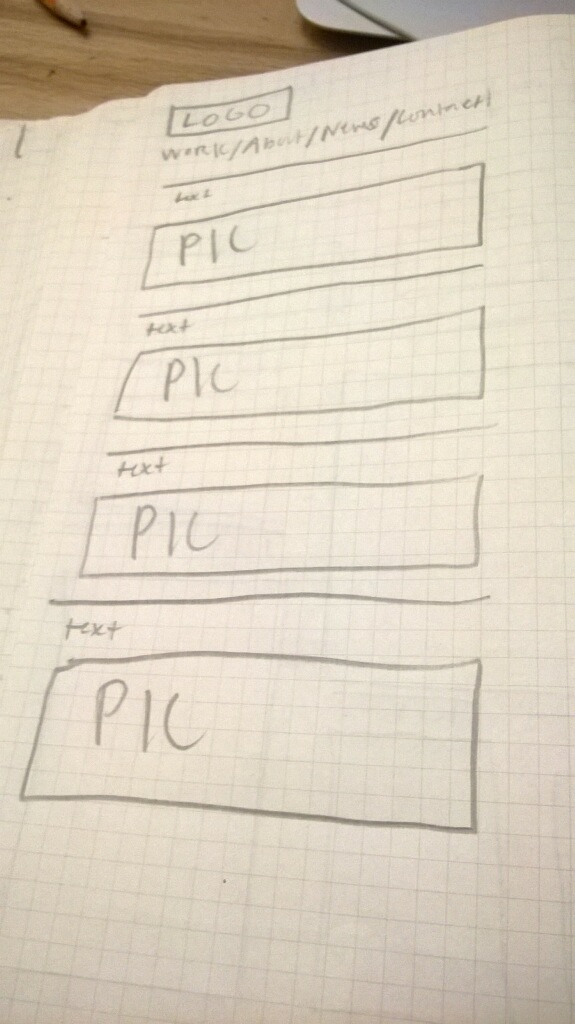 1
LOGO
Work/About/News/Contact
text
PIC
text
PIC
text
PIC
text
PIC